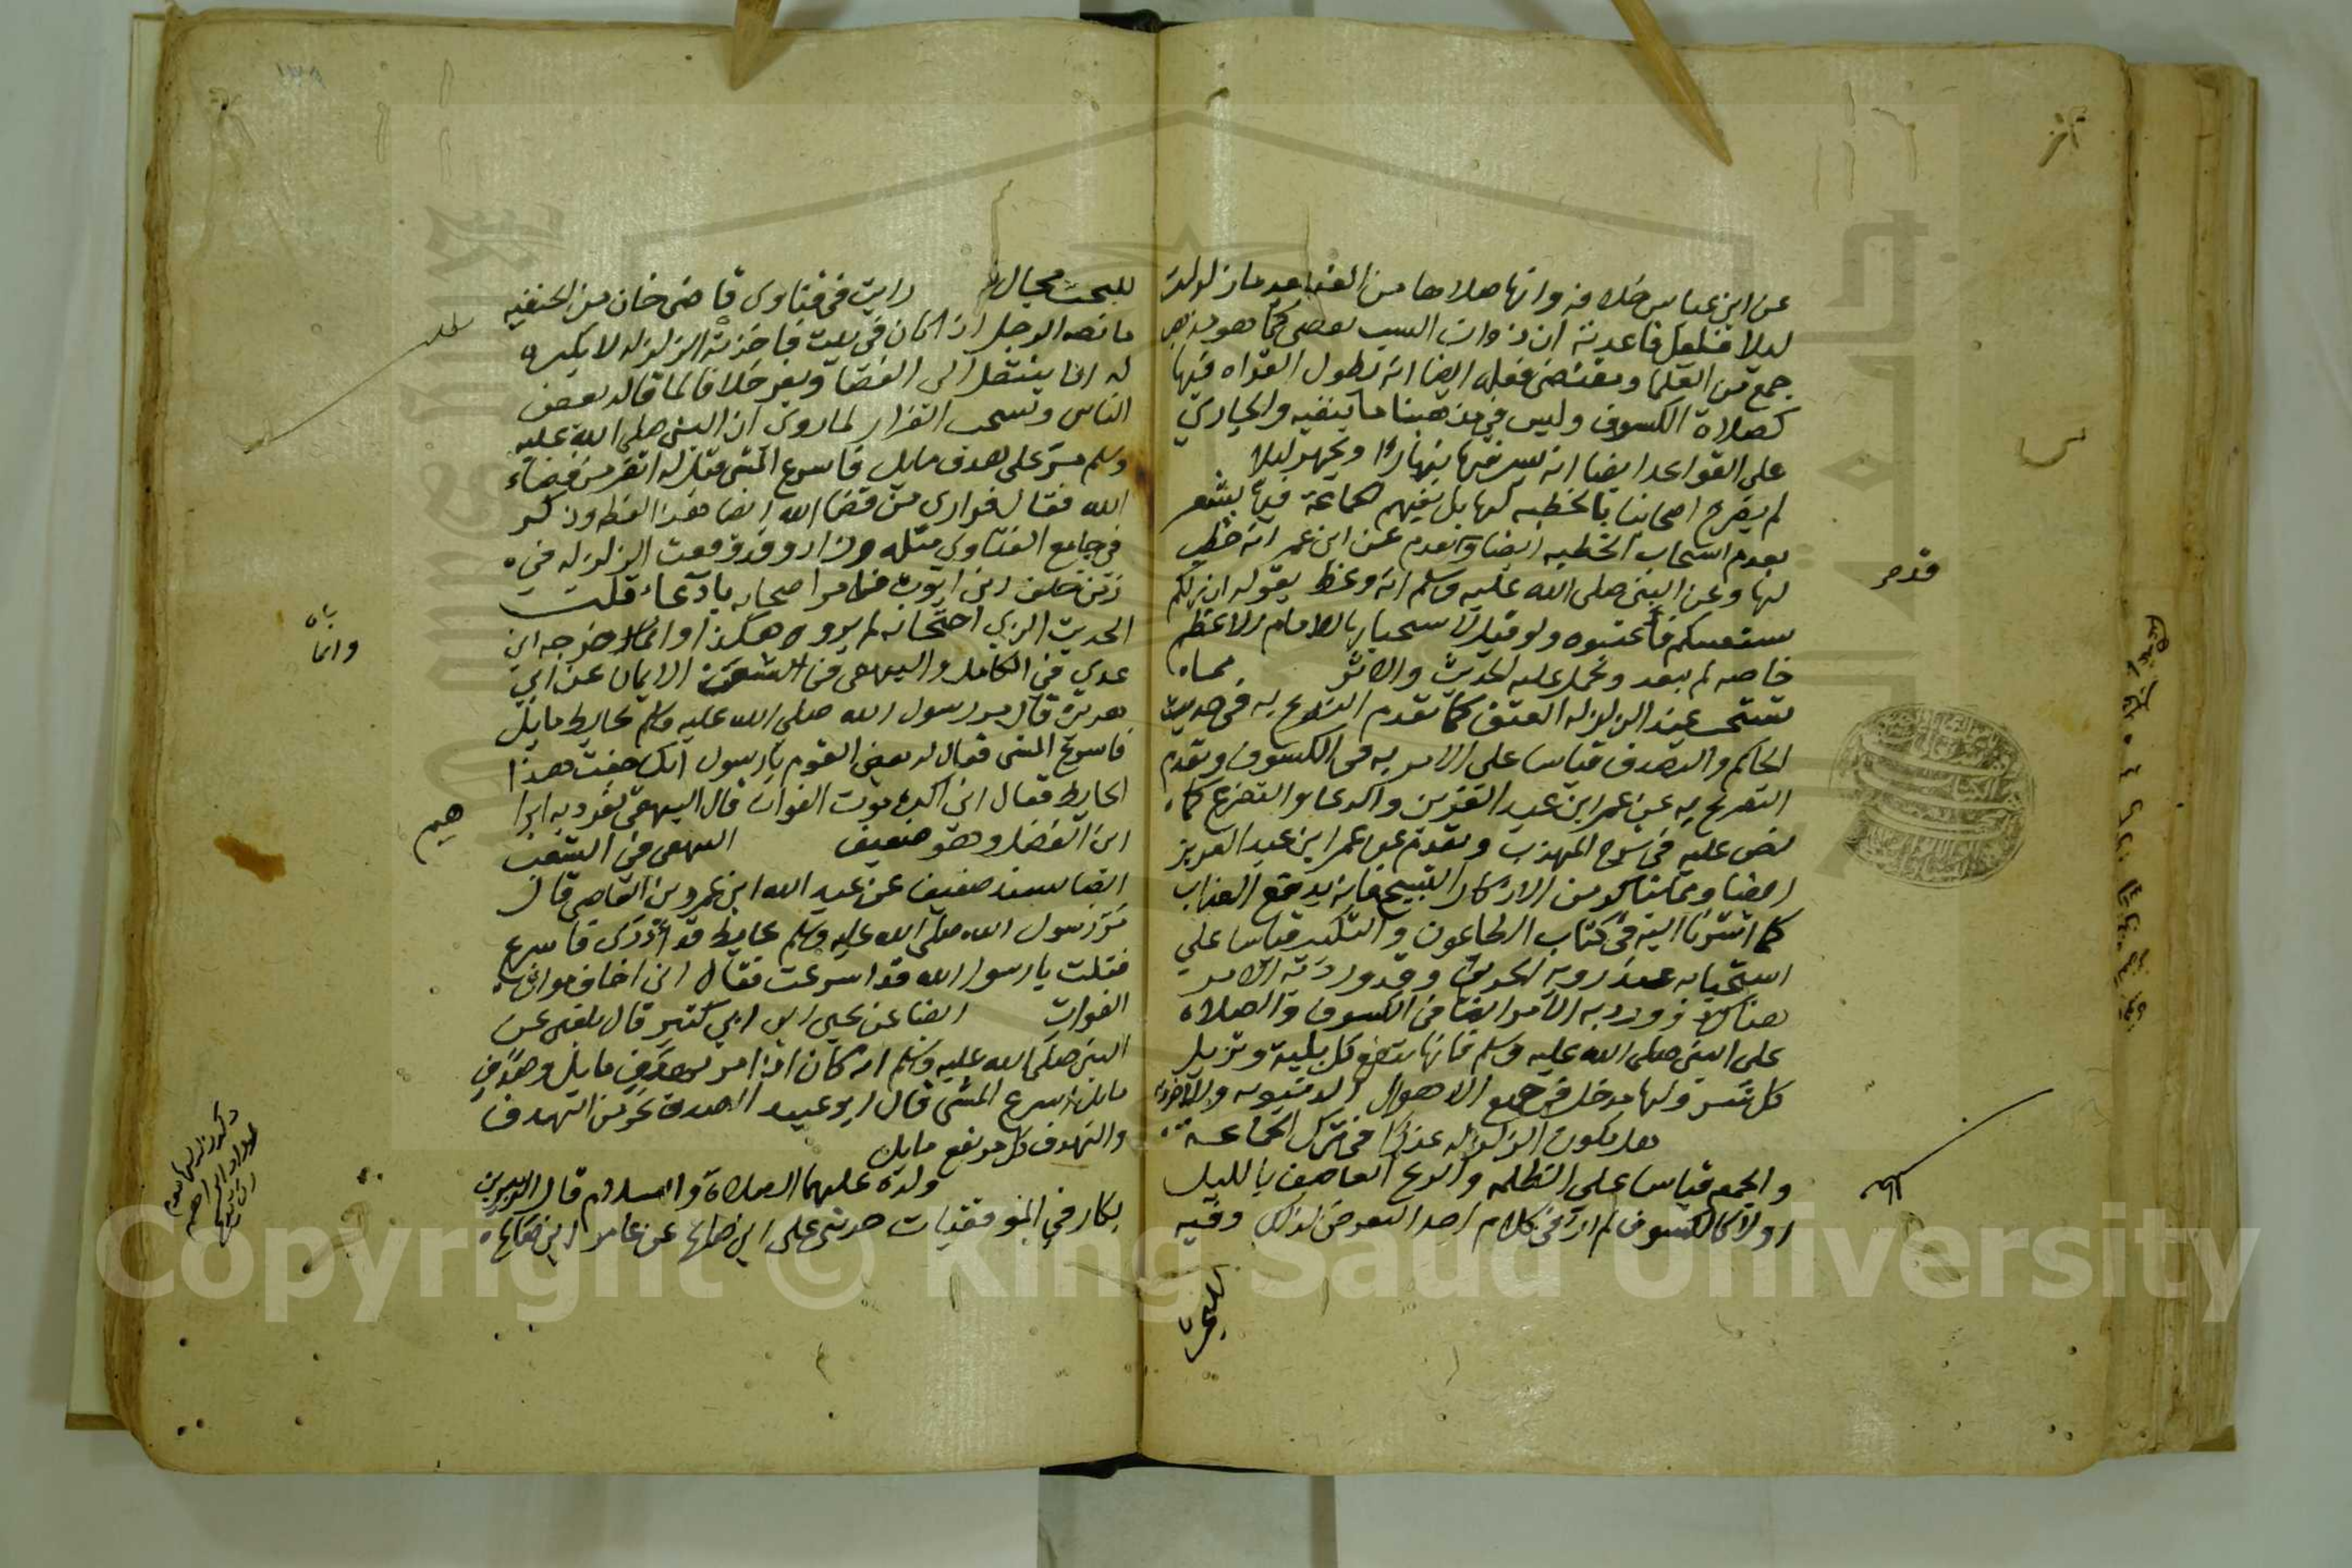 عن ابن عباس خلافه وانها صلاها من الغد بعد ما زلزلت
ليلا فلعل قاعدته ان ذوات السبب تقضى كما هو مذهب
جمع من العلما ومقتضى فعله ايضا انه يطول القراه فيها
كصلاة الكسوف وليس في مذهبنا ما ينفيه والجاري
على القواعد ايضا انه يسر فيها نهارا ويجهر ليلا
لم يصرح اصحابنا بالخطبه لها بل نفيهم الجماعة فيها يشعر
بعدم استحباب الخطبه ايضا وتقدم عن ابن عمر انه خطب
لها وعن النبي صلى الله عليه وسلم انه وعظ بقوله ان ربكم
يستعتبكم فاعتبوه ولو قيل الاستحباب بالامام الاعظم
خاصه لم يبعد ويحمل عليه الحديث والاثر
يستحب عند الزلزله العتق كما تقدم التصريح به في حديث
الحاكم والتصدق قياسا على الامر به في الكسوف وتقدم
التصريح به عن عمر ابن عبد العزيز والدعا والتضرع كما
نص عليه في شرح المهذب وتقدم عن عمر ابن عبد العزيز
ايضا ومما يتاكد من الاذكار التسبيح فانه يدفع العذاب
كما اشرنا اليه في كتاب الطاعون والتكبير قياسا علي
استحبابه عند روية الحريق وقد ورد به الامر
هناك وورد به الامر ايضا في الكسوف والصلاه
على النبي صلى الله عليه وسلم فانها تدفع كل بلية وتزيل
كل شر ولها مدخل في جميع الاهوال الدنيويه والاخرويه
هل يكون الزلزله عذرا في ترك الجماعة
والجمعه قياسا علي الظلمه والريح العاصف بالليل
اولا كالكسوف لم ار في كلام احد التعرض لذلك وفيه
للبحث
قدمر
للبحث مجال رايت في فتاوى قاضي خان من الحنفيه
ما نصه الرجل اذا كان في بيت فاخذته الزلزله لا يكره
له ان ينتقل الى الفضا ويفر خلافا لما قاله بعض
الناس ويستحب الفرار لما روى ان النبي صلى الله عليه
وسلم مر على هدف مايل فاسرع المشي فقيل له اتفر من قضاء
الله فقال فراري من قضا الله ايضا هذا لفظه وذكر
في جامع الفتاوى مثله وزاد وقد وقعت الزلزله في
زمن خلف ابن ايوب فامر اصحابه بالدعاء قلت
الحديث الذي احتجا به لم يرو هكذا وانما خرجه ابن
عدي في الكامل والبيهقي في شعب الايمان عن ابي
هريره قال مر رسول الله صلى الله عليه وسلم بحايط مايل
فاسرع المشي فقال له بعض القوم يا رسول انك خفت هذا
الحايط فقال اني اكره موت الفوات قال البيهقي تفرد به ابرا
هيم
ابن الفضل وهو ضعيف البيهقي في الشعب
ايضا بسند ضعيف عن عبد الله ابن عمرو بن العاصي قال
مر رسول الله صلى الله عليه وسلم بحايط قد فاسرع
فقلت يا رسول الله قد اسرعت فقال اني اخاف موات
الفوات ايضا عن يحيى ابن ابي كثير قال بلغني عن
النبي صلى الله عليه وسلم انه كان اذا مر بهدف مايل وصدف
مايل اسرع المشي قال ابو عبيد الصدف نحو من الهدف
والهدف كل مرتفع مايل
ولده عليهما الصلاة والسلام قال الزبير بن
بكار في الموفقيات حدثني علي ابن صالح عن عامر ابن صالح
وانما
Copyright © King Saud University